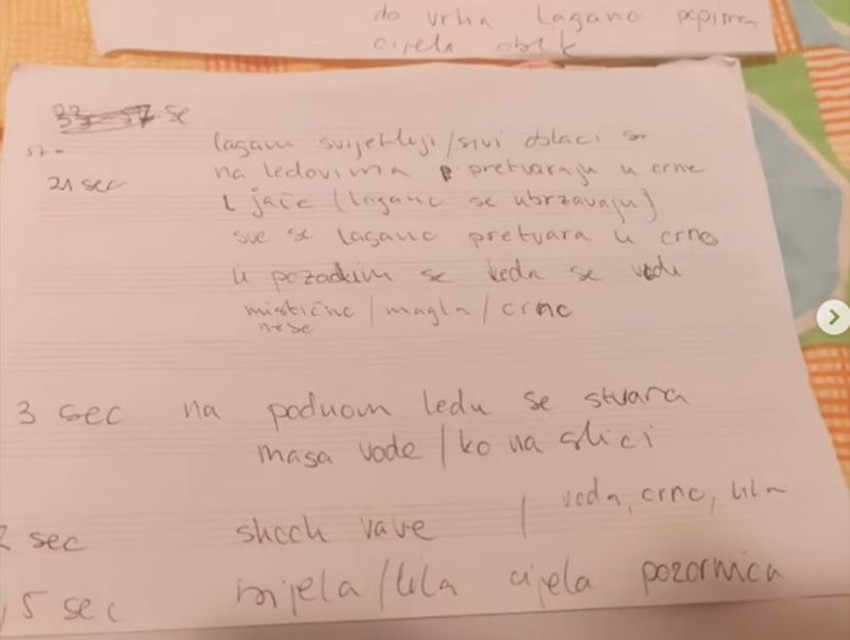 do vrha lagano popima
cijeli oblik
se
21 sec
lagani svijetliji/sivi oblaci se
na ledovima pretvaraju u crne
i jače (lagano se ubrzavaju)
sve se lagano pretvara u crno
u pozadini se leda se vidi
mistično / magla / crno
3 sec na podnom ledu se stvara
masa vode / ko na slici
2 sec shock vave / voda, crno, lila
,5 sec bijela/lila cijela pozornica